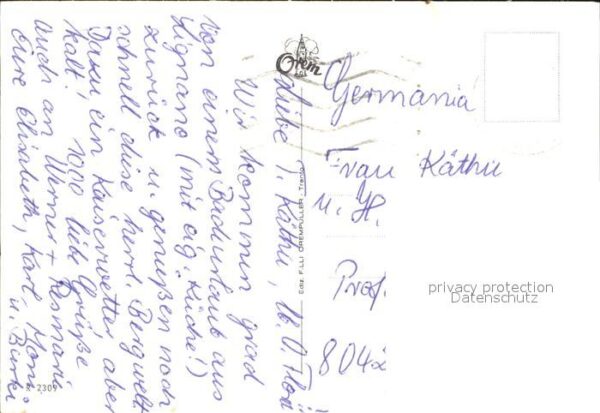 Liebe T. Käthe, lb. O. Flori
Wir kommen grad
von einem Badeurlaub aus
Lignano (mit eig. Küche!)
zurück u. genießen noch
schnell diese herrl. Bergwelt
Dazu ein Kaiserwetter aber
kalt! 1000 liebe Grüße
auch an Werner + Rosmarie
Eure Elisabeth, Karl, Moni
u. Burki
Orem
Ediz. F.LLI OREMPULLER - Trento
Germania
Frau Käthe
u. H.
Prof.
804
privacy protection
Datenschutz
2309